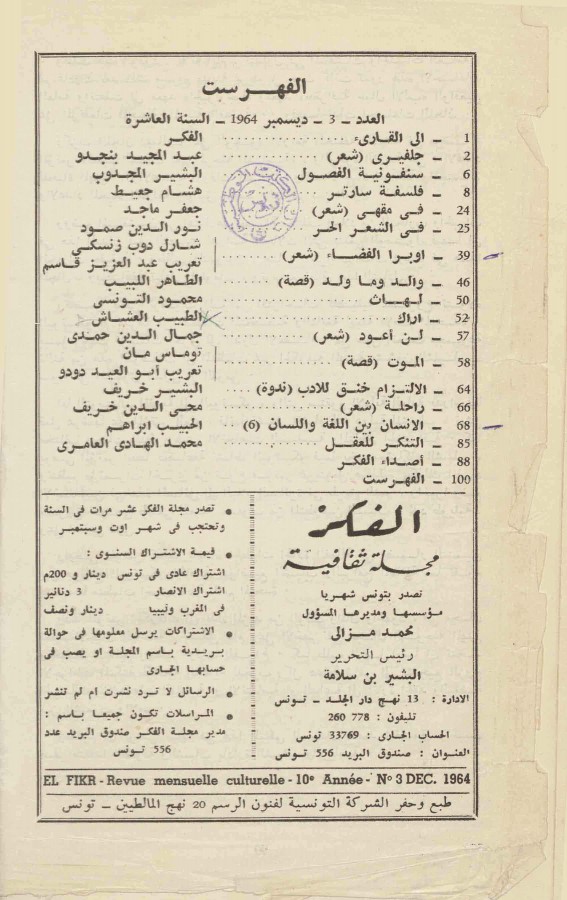 الفهرست
العدد - 3 - ديسمبر 1964 - السنة العاشرة
1 - الى القارىء ........ الفكر
2 - جلفيرى (شعر) ........ عبد المجيد بنجدو
6 - سنفونية الفصول ........ البشير المجدوب
8 - فلسفة سارتر ........ هشام جعيط
24 - فى مقهى (شعر) ........ جعفر ماجد
25 - فى الشعر الحر ........ نور الدين صمود
39 - اوبرا الفضاء (شعر) ........ شارل دوب زنسكي
تعريب عبد العزيز قاسم
46 - والد وما ولد (قصة) ........ الطاهر اللبيب
50 - لهاث ........ محمود التونسى
52 - اراك ........ الطيب العشاش
57 - لن أعود (شعر) ........ جمال الدين حمدى
58 - الموت (قصة) ........ توماس مان
تعريب أبو العيد دودو
64 - الالتزام خنق للادب (ندوة) ........ البشير خريف
66 - راحلة (شعر) ........ محى الدين خريف
68 - الانسان بين اللغة واللسان (6) ........ الحبيب ابراهم
85 - التنكر للعقل ........ محمد الهادى العامرى
88 - أصداء الفكر
100 - الفهرست
الفكر
مجلة ثقافية
تصدر بتونس شهريا
مؤسسها ومديرها المسؤول
محمد مزالى
رئيس التحرير
البشير بن سلامة
الادارة : 13 نهج دار الجلد - تونس
تليفون : 778 260
الحساب الجارى : 33769 تونس
العنوان : صندوق البريد 556 تونس
• تصدر مجلة الفكر عشر مرات فى السنة
وتحتجب فى شهر اوت وسبتمبر
• قيمة الاشتراك السنوى :
اشتراك عادى فى تونس دينار و 200م
اشتراك الانصار 3 دنانير
فى المغرب وليبيا دينار ونصف
• الاشتراكات يرسل معلومها فى حوالة
بريدية باسم المجلة او يصب فى
حسابها الجارى
• الرسائل لا ترد نشرت ام لم تنشر
• المراسلات تكون جميعا باسم :
مدير مجلة الفكر صندوق البريد عدد
556 تونس
EL FIKR - Revue mensuelle culturelle - 10e Année - No 3 DEC. 1964
طبع وحفر الشركة التونسية لفنون الرسم 20 نهج المالطيين - تونس